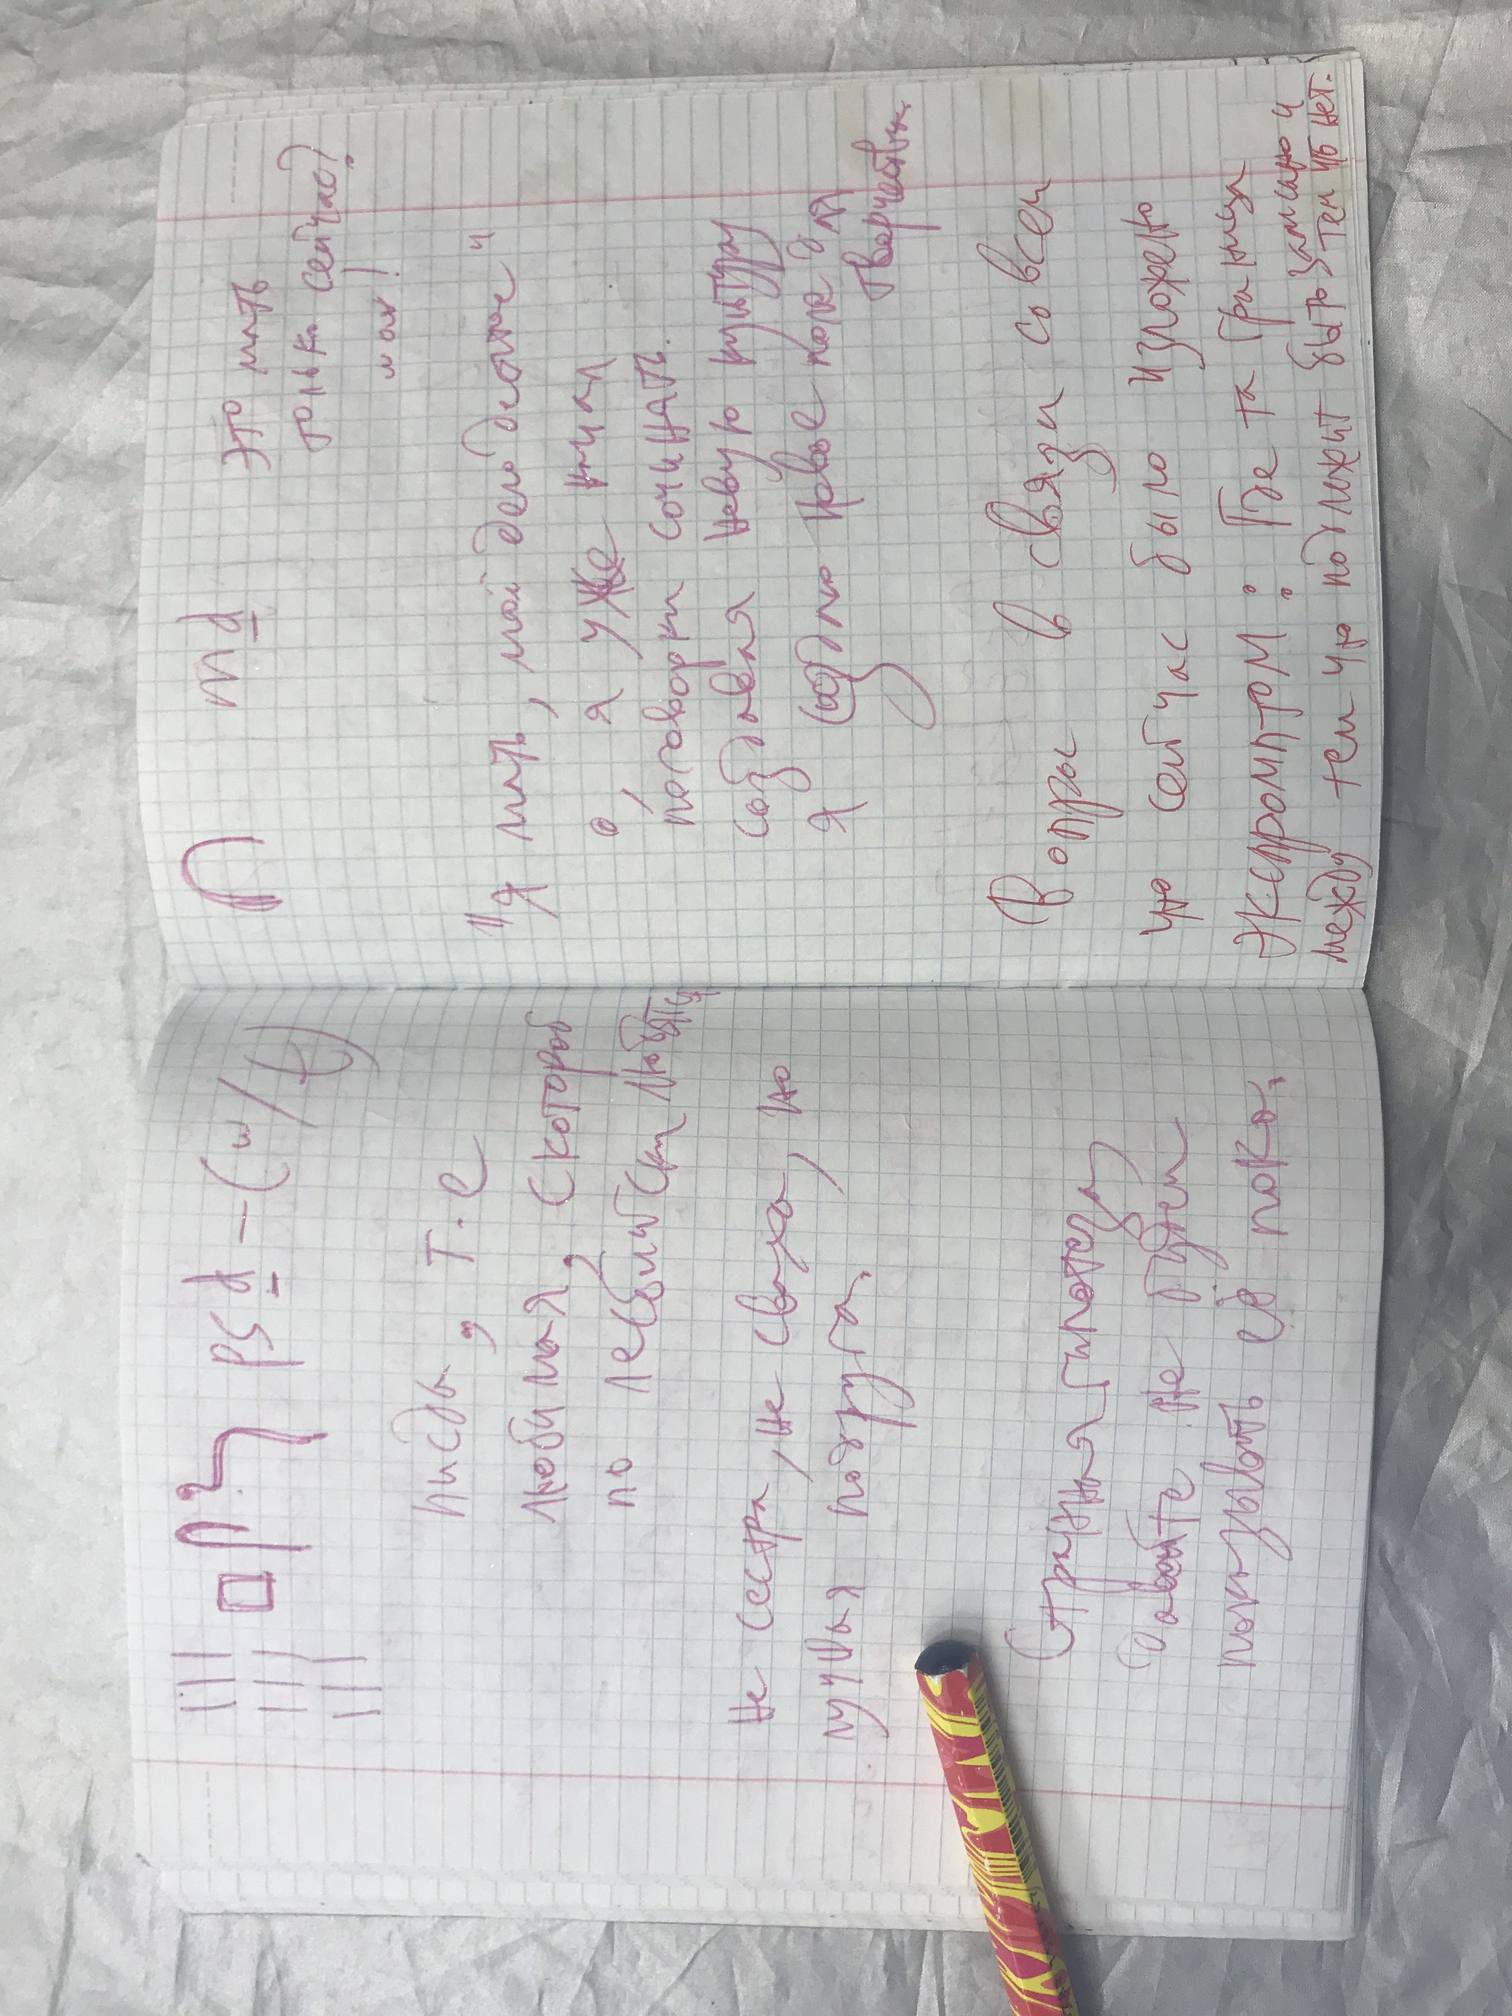 psd — (w/t)
пизды, т.е
любимая, с которой
по лесбийски любятся
не сестра, не сваха, но
лучшая подруга.
Странная гипотеза
Давайте не будем
показывать её пока.
md
это мать
только сейчас?
моя!
"Я мать, моё дело дебютное"
о, я уже начал
поговорки сочинять.
создавая новую культуру
я создаю новое поле для
творчества.
Вопрос в связи со всем
что сейчас было изложено
экспромптом: Где та граница
между тем что подлежит быть записано и
тем что нет.